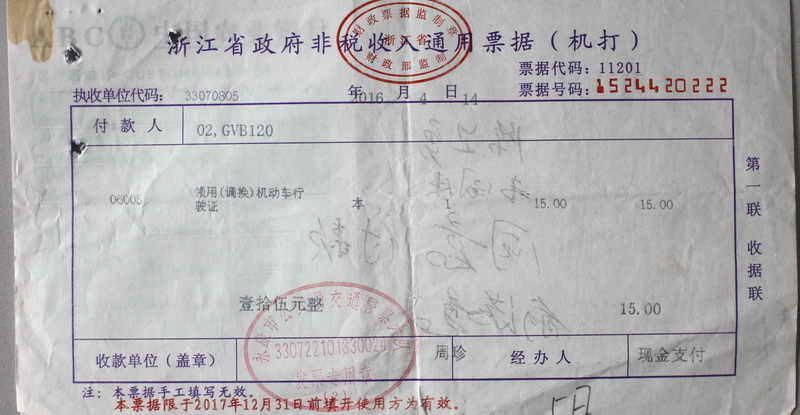 浙江省政府非税收入通用票据（机打）
财政票据监制章
浙江省
财政部监制
票据代码：11201
执收单位代码：33070805 年2016 月4 日14 票据号码：1524420222
付款人 02,GVB120
06005 领用(调换)机动车行驶证 本 1 15.00 15.00
壹拾伍元整 15.00
永康市公安局交通警察大队
330722101830024
发票专用章
收款单位（盖章） 周珍 经办人 现金支付
第一联 收据联
注：本票据手工填写无效。
本票据限于2017年12月31日前填开使用方为有效。